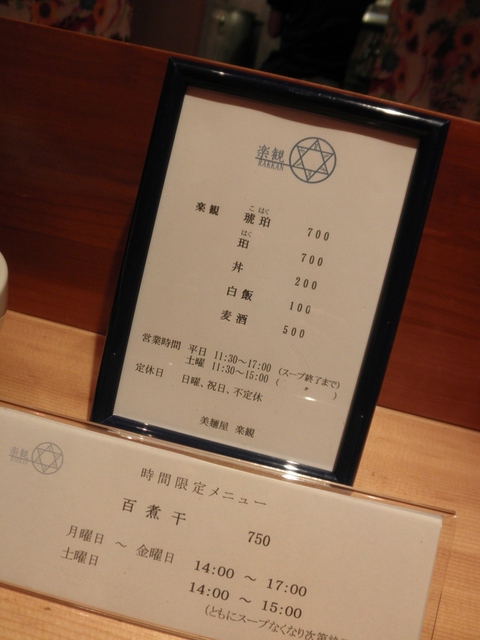 楽観
RAKKAN
楽観 琥珀 こはく 700
珀 はく 700
丼 200
白飯 100
麦酒 500
営業時間 平日 11:30～17:00 (スープ終了まで)
土曜 11:30～15:00 ( 〃 )
定休日 日曜、祝日、不定休
美麺屋 楽観
楽観
時間限定メニュー
百煮干 750
月曜日 ～ 金曜日 14:00 ～ 17:00
土曜日 14:00 ～ 15:00
(ともにスープなくなり次第